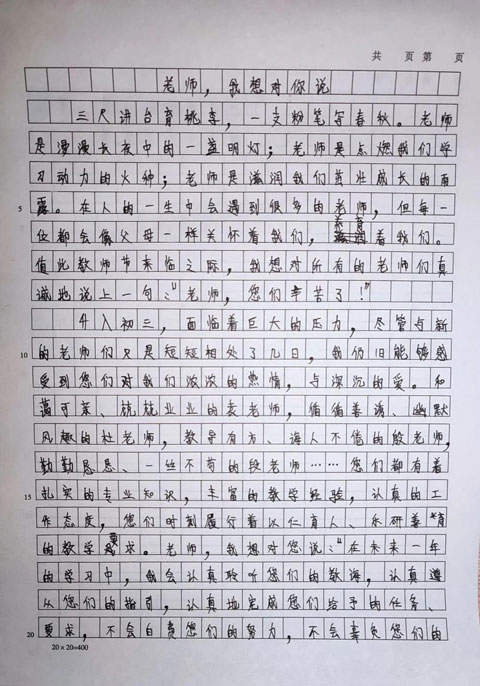 共 页 第 页
老师，我想对你说
三尺讲台育桃李，一支粉笔写春秋。老师
是漫漫长夜中的一盏明灯；老师是点燃我们学
习动力的火种；老师是滋润我们茁壮成长的雨
5 露。在人的一生中会遇到很多的老师，但每一
位都会像父母一样关怀着我们，养育着我们。
值此教师节来临之际，我想对所有的老师们真
诚地说上一句："老师，您们辛苦了！"
升入初三，面临着巨大的压力，尽管与新
10 的老师们只是短短相处了几日，我仍旧能够感
受到您们对我们浓浓的热情，与深沉的爱。和
蔼可亲、兢兢业业的袁老师，循循善诱、幽默
风趣的杜老师，教导有方、诲人不倦的殷老师，
勤勤恳恳、一丝不苟的段老师……您们都有着
15 扎实的专业知识，丰富的教学经验，认真的工
作态度，您们时刻履行着以仁育人、乐研善育
的教学要求。老师，我想对您说："在未来一年
的学习中，我会认真聆听您们的教诲，认真遵
从您们的指引，认真地完成您们给予的任务、
20 要求，不会白费您们的努力，不会辜负您们的
20×20=400